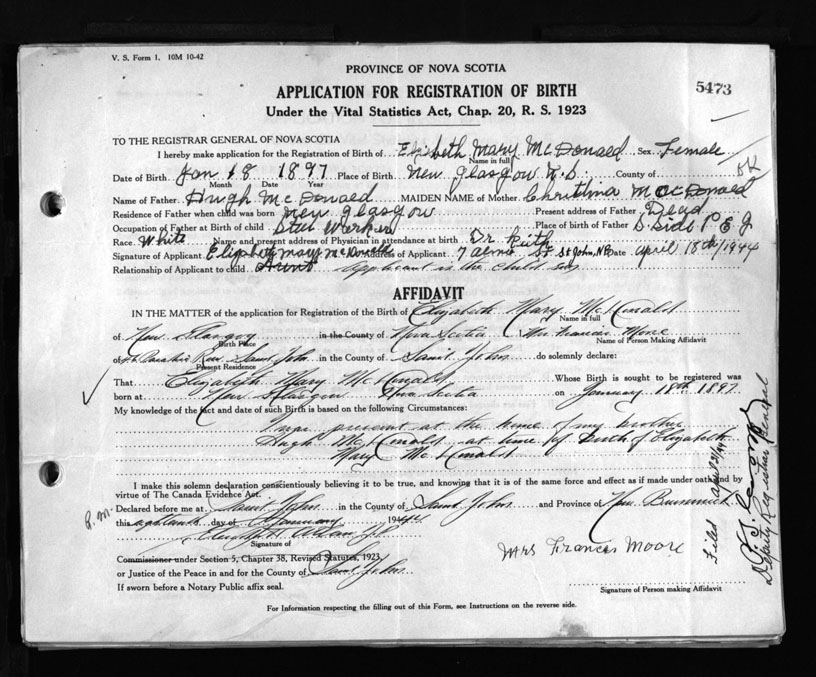 V. S. Form 1. 10M 10-42
PROVINCE OF NOVA SCOTIA
5473
APPLICATION FOR REGISTRATION OF BIRTH
Under the Vital Statistics Act, Chap. 20, R. S. 1923
TO THE REGISTRAR GENERAL OF NOVA SCOTIA
I hereby make application for the Registration of Birth of Elizabeth Mary McDonald Sex Female
Name in full
Date of Birth Jan 18 1897 Place of Birth New Glasgow N.S County of
Month Date Year
Name of Father Hugh McDonald MAIDEN NAME of Mother Christina MacDonald
Residence of Father when child was born New Glasgow Present address of Father Dead
Occupation of Father at Birth of child Steel Worker Place of birth of Father S. Side P E I
Race. White Name and present address of Physician in attendance at birth Dr Keith
Signature of Applicant Elizabeth Mary McDonald Address of Applicant 7 Alma St. St John, NB Date April 18th/1944
Relationship of Applicant to child Aunt Applicant is the child
AFFIDAVIT
IN THE MATTER of the application for Registration of the Birth of Elizabeth Mary McDonald
Name in full
of New Glasgow in the County of Nova Scotia I, Mrs Frances Moore
Birth Place Name of Person Making Affidavit
of Row Saint John in the County of Saint John do solemnly declare:
Present Residence
That Elizabeth Mary McDonald Whose Birth is sought to be registered was
born at New Glasgow Nova Scotia on January 18th 1897
My knowledge of the fact and date of such Birth is based on the following Circumstances:
I was present at the home of my brother
Hugh McDonald at time of Birth of Elizabeth
Mary McDonald
I make this solemn declaration conscientiously believing it to be true, and knowing that it is of the same force and effect as if made under oath and by
virtue of The Canada Evidence Act.
Declared before me at Saint John in the County of Saint John and Province of New Brunswick
this eighteenth day of January 1944
Signature of
Mrs Frances Moore
Commissioner under Section 5, Chapter 38, Revised Statutes, 1923
or Justice of the Peace in and for the County of Saint John
If sworn before a Notary Public affix seal.
Signature of Person making Affidavit
For Information respecting the filling out of this Form, see Instructions on the reverse side.
Filed April
Deputy Registrar General